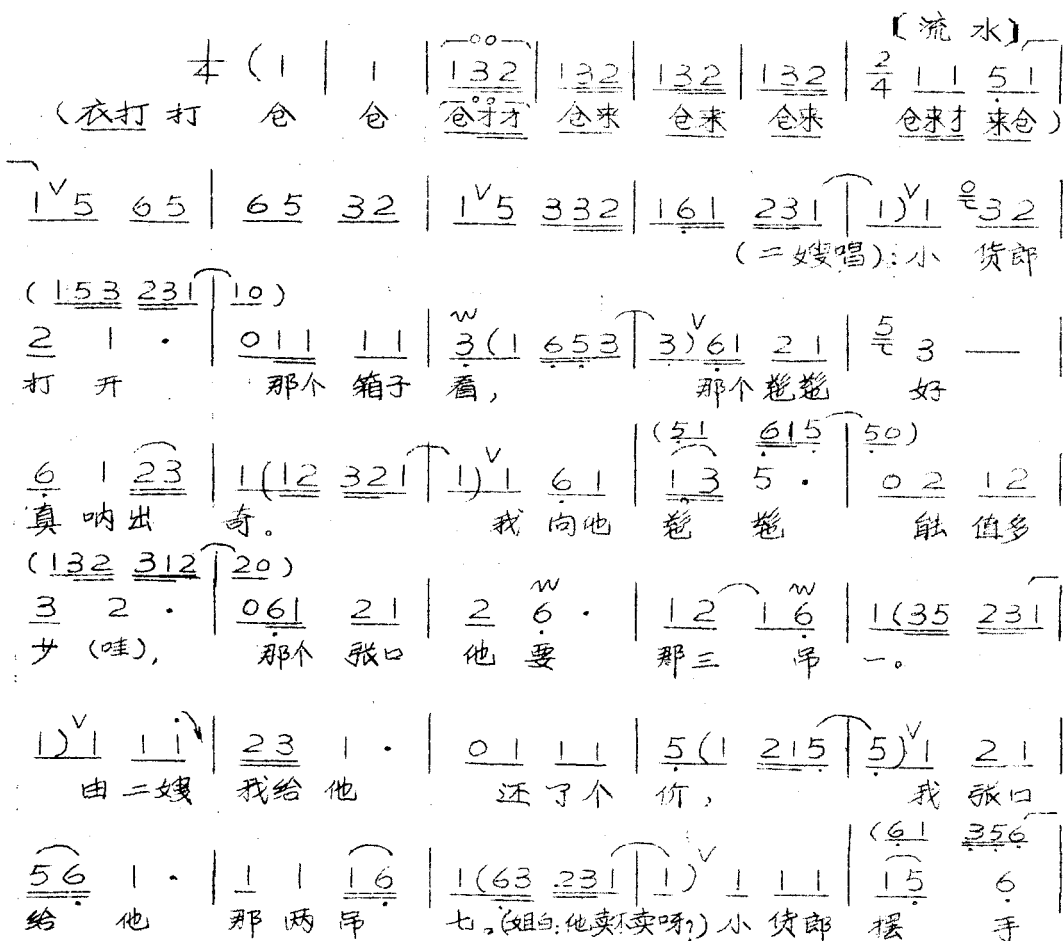 〔流水〕
1/4 ( 1 | 1 | 132 | 132 | 132 | 132 | 2/4 1 1 5 1 |
(衣打打 仓 仓 仓才才 仓来 仓来 仓来 仓来才 来仓)
1 V 5 65 | 65 32 | 1 V 5 332 | 161 231 | 1) V 1 32 |
(二嫂唱):小 货郎
(153 231 | 10)
2 1 · | 011 11 | 3 (1 653 | 3) V 61 21 | 5 3 — |
打 开 那个 箱子 看, 那个 髢髢 好
(51 615 | 50)
6 1 23 | 1 (12 321 | 1) V 1 61 | 13 5 · | 02 12 |
真 呐 出 奇。 我 向他 髢 髢 能 值多
(132 312 | 20)
3 2 · | 061 21 | 2 6 · | 12 16 | 1 (35 231 |
少 (哇), 那个 张口 他 要 那三 吊 一。
1) V 1 1 i | 23 1 · | 01 11 | 5 (1 215 | 5) V 1 21 |
由 二嫂 我给 他 还 了个 价, 我 张口
(61 356
56 1 · | 1 1 16 | 1 (63 .231 | 1) V 1 11 | 15 6 |
给 他 那 两 吊 七。(姐白:他卖不卖呀?) 小 货郎 摆 手